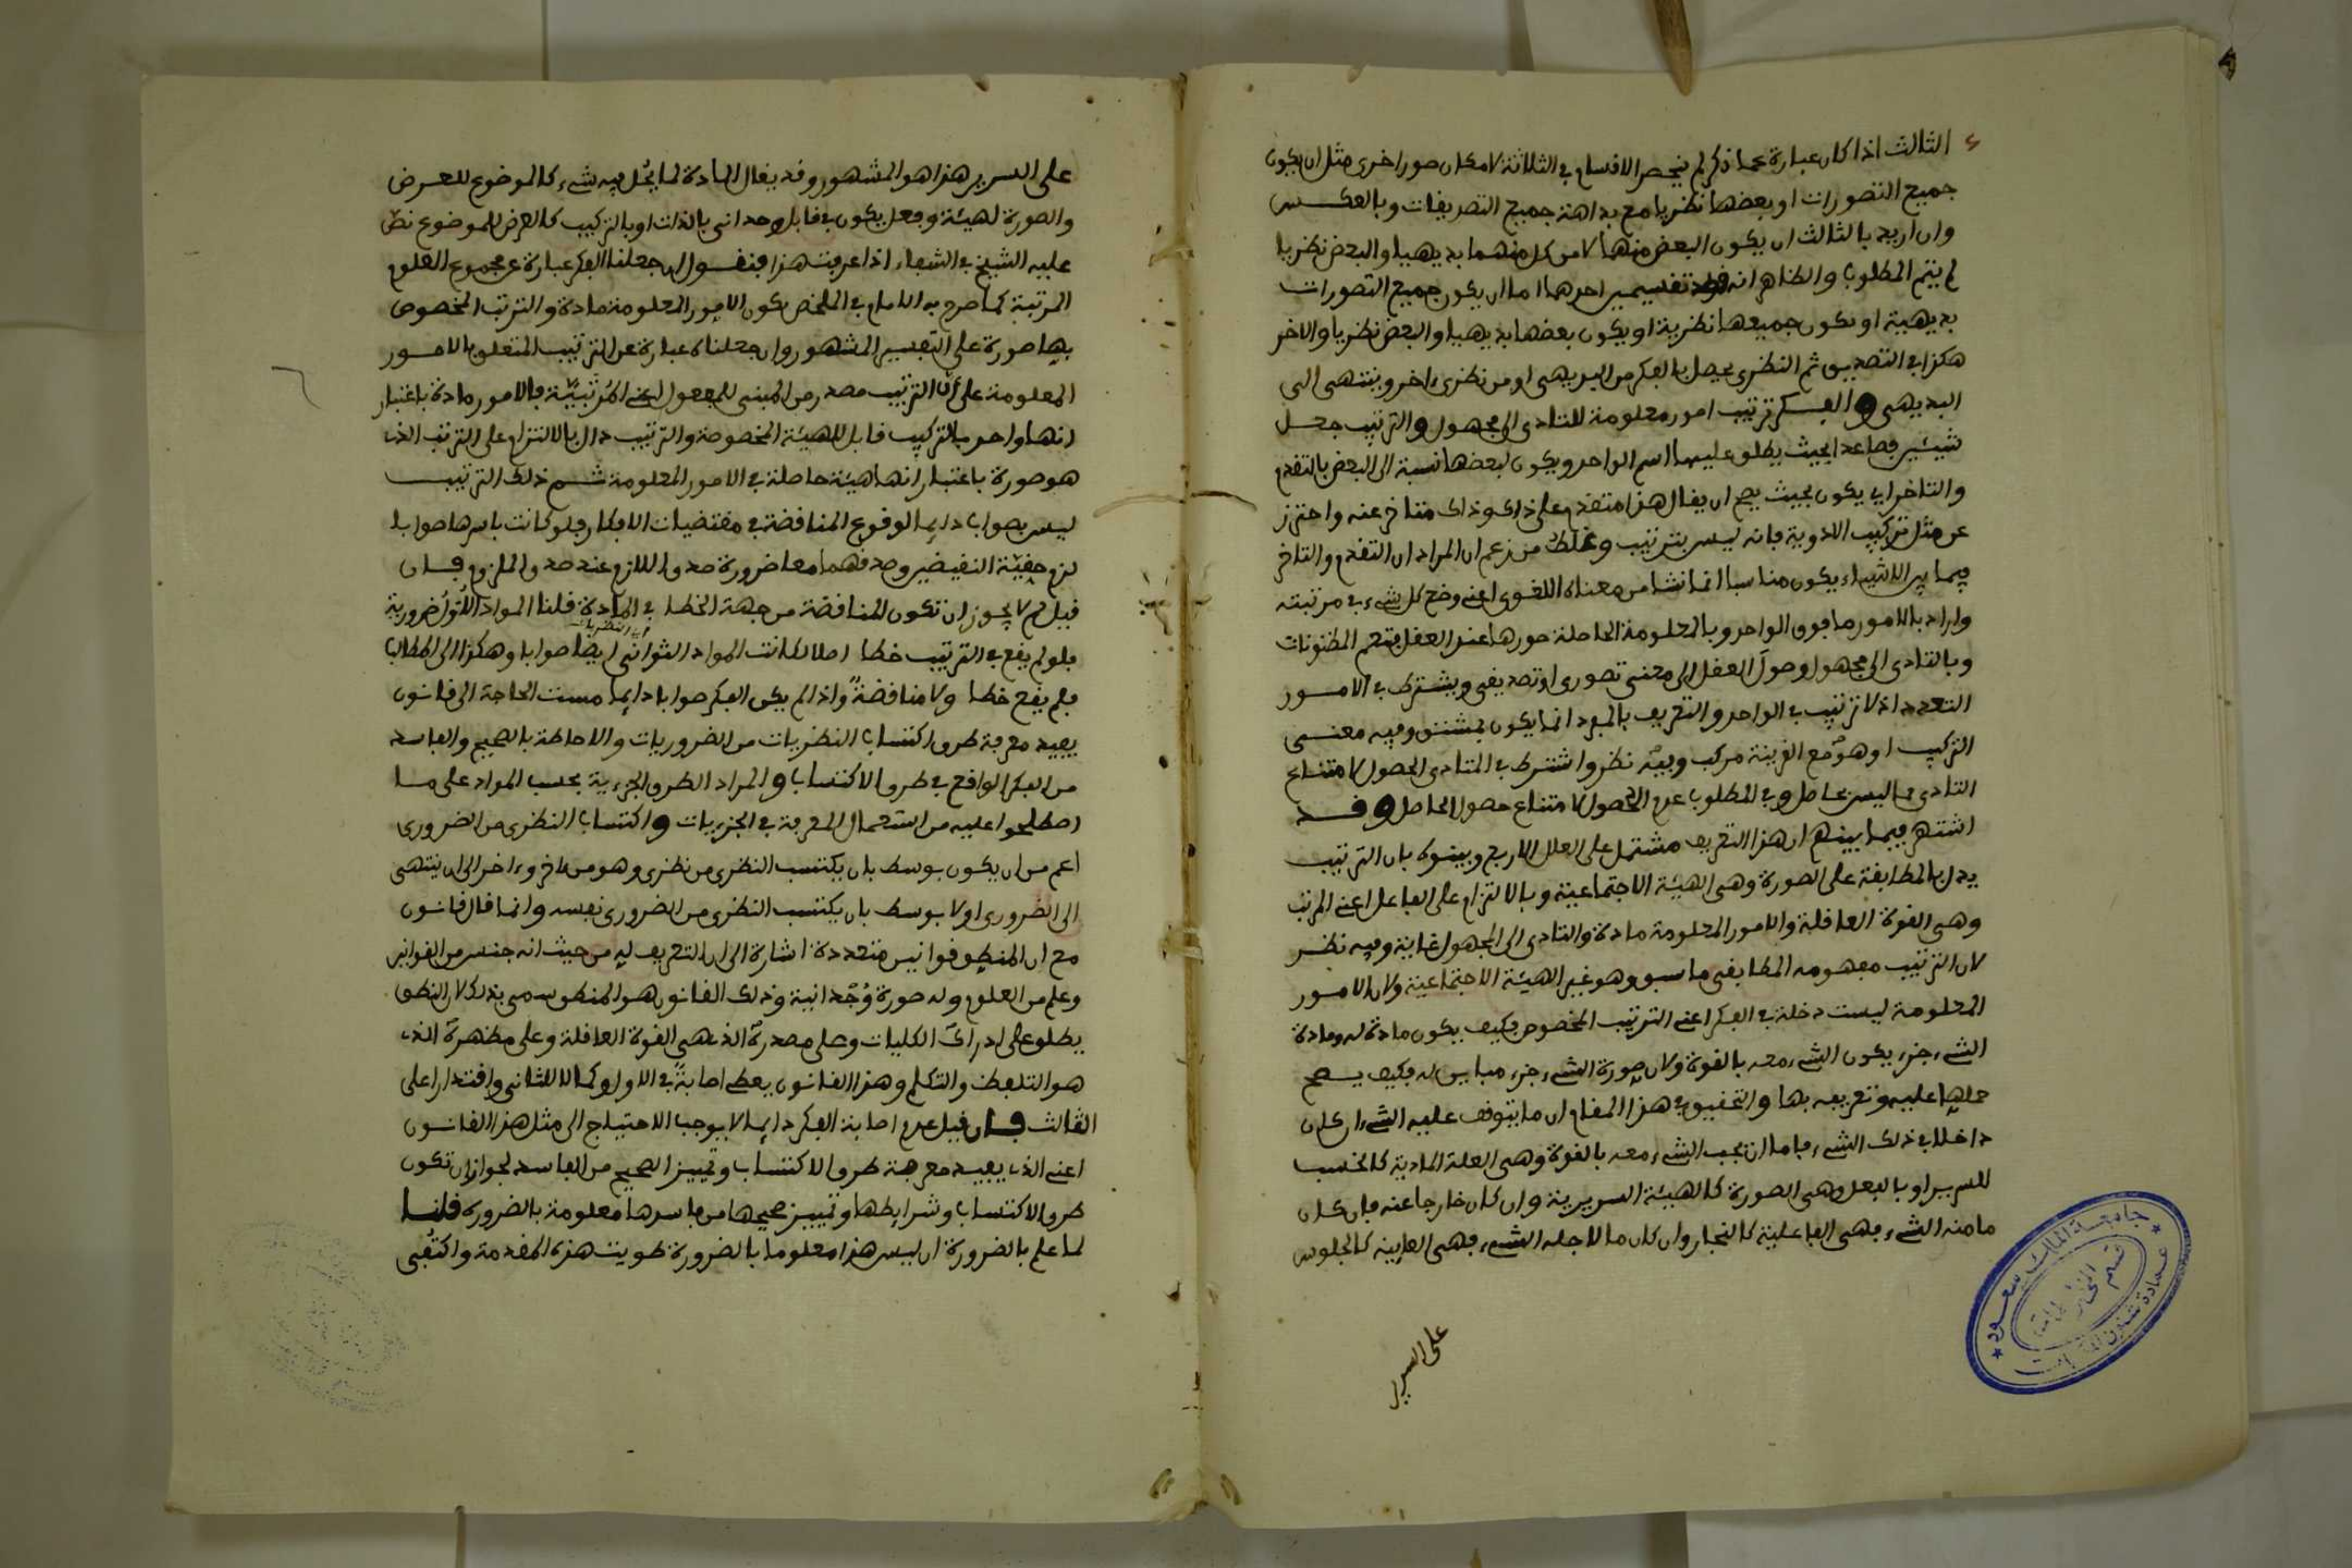 الثالث اذا كان عبارة عما ذكر لم ينحصر الاقسام في الثلاثة لامكان صور اخرى مثل ان يكون
جميع التصورات او بعضها نظريا مع بداهة جميع التصديقات وبالعكس
وان اريد بالثالث ان يكون البعض منها لا من كل منهما بديهيا والبعض نظريا
لم يتم المطلوب والظاهر انه تقسيمين احدهما اما ان يكون جميع التصورات
بديهية او يكون جميعها نظرية او يكون بعضها بديهيا والبعض نظريا والاخر
هكذا في التصديق ثم النظري يحصل بالفكر من البديهي او من نظري اخر وينتهي الى
البديهي والفكر ترتيب امور معلومة للتادي الى مجهول والترتيب جعل
شيئين فصاعدا بحيث يطلق عليها اسم الواحد ويكون لبعضها نسبة الى البعض بالتقدم
والتاخر اي يكون بحيث يصح ان يقال هذا متقدم على ذاك وذاك متاخر عنه واحترز
عن مثل تركيب الادوية فانه ليس بترتيب وغلط من زعم ان المراد ان التقدم والتاخر
فيما بين الاشياء يكون مناسبا انما نشا من معناه اللغوي اعني وضع كل شيء في مرتبته
واراد بالامور ما فوق الواحد وبالمعلومة الحاصلة صورها عند العقل فتعم المظنونات
وبالتادي الى مجهول وصول العقل الى معنى تصوري او تصديقي ويشترط في الامور
التعدد اذ لا ترتيب في الواحد والتعريف بالمفرد انما يكون بمشتق وفيه معنى
التركيب او هو مع القرينة مركب وفيه نظر واشترط في المتادي الحصول لامتناع
التادي مما ليس بحاصل وفي المطلوب عدم الحصول لامتناع حصول الحاصل وقد
اشتهر فيما بينهم ان هذا التعريف مشتمل على العلل الاربع وبينوه بان الترتيب
يدل بالمطابقة على الصورة وهي الهيئة الاجتماعية وبالالتزام على الفاعل اعني المرتب
وهي القوة العاقلة والامور المعلومة مادة والتادي الى المجهول غاية وفيه نظر
لان الترتيب مفهومه المطابقي ما سبق وهو غير الهيئة الاجتماعية ولان الامور
المعلومة ليست دخلة في الفكر اعني الترتيب المخصوص فكيف يكون مادة له ومادة
الشيء جزء يكون الشيء معه بالقوة ولان صورة الشيء جزء مباين له فكيف يصح
حملها عليه وتعريفه بها والتحقيق في هذا المقام ان ما يتوقف عليه الشيء ان كان
داخلا في ذلك الشيء فاما ان يجب الشيء معه بالقوة وهي العلة المادية كالخشب
للسرير او بالفعل وهي الصورة كالهيئة السريرية وان كان خارجا عنه فان كان
ما منه الشيء فهي الفاعلية كالنجار وان كان ما لاجله الشيء فهي الغايية كالجلوس
على السرير
جامعة الملك سعود
قسم
عمادة شئون المكتبات
على السرير هذا هو المشهور وقد يقال المادة لما يحل فيه شيء كالموضوع للعرض
والصورة لهيئة وفعل يكون في قابل وحداني بالذات او بالتركيب كالعرض للموضوع نص
عليه الشيخ في الشفاء اذا عرفت هذا فنقول ان جعلنا الفكر عبارة عن مجموع العلوم
المرتبة كما صرح به الامام في الملخص يكون الامور المعلومة مادة والترتب المخصوص
فيها صورة على التفسير المشهور وان جعلناه عبارة عن الترتيب المتعلق بالامور
المعلومة على ان الترتيب مصدر من المبني للمفعول اعني المرتبية فالامور مادة باعتبار
انها واحد بالتركيب قابل للهيئة المخصوصة والترتيب دال بالالتزام على الترتب الذي
هو صورة باعتبار انها هيئة حاصلة في الامور المعلومة ثم ذلك الترتيب
ليس بصواب دايما لوقوع المناقضة في مقتضيات الافكار فلو كانت باسرها صوابا
لزم حقية النقيضين وصدقهما معا ضرورة صدق اللازم عند صدق الملزوم فان
قيل لم لا يجوز ان تكون المناقضة من جهة الخطا في المادة قلنا المواد الاول ضرورية
اي النظريات
فلو لم يقع في الترتيب خطا اصلا لكانت المواد الثواني ايضا صوابا وهكذا الى المطالب
فلم يقع خطا ولا مناقضة واذا لم يكن الفكر صوابا دايما مست الحاجة الى قانون
يفيد معرفة طرق اكتساب النظريات من الضروريات والاحاطة بالصحيح والفاسد
من الفكر الواقع في طرق الاكتساب والمراد الطرق الجزءية بحسب المواد على ما
اصطلحوا عليه من استعمال المعرفة في الجزييات واكتساب النظري من الضروري
اعم من ان يكون بوسط بان يكتسب النظري من نظري وهو من اخر الى ان ينتهي
الى الضروري او لا بوسط بان يكتسب النظري من الضروري نفسه وانما قال قانون
مع ان المنطق قوانين متعددة اشارة الى ان التعريف له من حيث انه جنس من القوانين
وعلم من العلوم وله صورة وحدانية وذلك القانون هو المنطق سمي بذلك لان النطق
يطلق على ادراك الكليات وعلى مصدره الذي هي القوة العاقلة وعلى مظهره الذي
هو التلفظ والتكلم وهذا القانون يعطي اصابة في الاول وكمالا للثاني واقتدارا على
الثالث فان قيل عدم اصابة الفكر دايما لا يوجب الاحتياج الى مثل هذا القانون
اعني الذي يفيد معرفة طرق الاكتساب وتمييز الصحيح من الفاسد لجواز ان تكون
طرق الاكتساب وشرايطها وتمييز صحيحها من فاسدها معلومة بالضرورة قلنا
لما علم بالضرورة ان ليس هذا معلوما بالضرورة طويت هذه المقدمة واكتفي